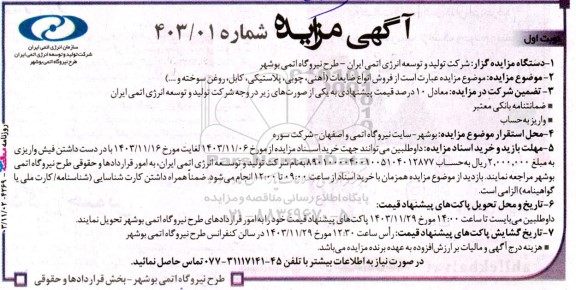 آگهی مزایده شماره ۴۰۳/۰۱
نوبت اول
سازمان انرژی اتمی ایران
شرکت تولید و توسعه انرژی اتمی ایران
طرح نیروگاه اتمی بوشهر
۱-دستگاه مزایده گزار: شرکت تولید و توسعه انرژی اتمی ایران - طرح نیروگاه اتمی بوشهر
۲-موضوع مزایده: موضوع مزایده عبارت است از فروش انواع ضایعات (آهنی، چوبی، پلاستیکی، کابل، روغن سوخته و ...)
۳- تضمین شرکت در مزایده: معادل ۱۰ درصد قیمت پیشنهادی به یکی از صورت‌های زیر در وجه شرکت تولید و توسعه انرژی اتمی ایران
ضمانتنامه بانکی معتبر
واریز به حساب
۴-محل استقرار موضوع مزایده: بوشهر-سایت نیروگاه اتمی و اصفهان-شرکت سوره
۵-مهلت بازدید و خرید اسناد مزایده: داوطلبین می‌توانند جهت خرید اسناد مزایده از مورخ ۱۴۰۳/۱۱/۰۶ لغایت مورخ ۱۴۰۳/۱۱/۱۶ با در دست داشتن فیش واریزی
به مبلغ ۲,۰۰۰,۰۰۰ ریال به حساب به نام شرکت تولید و توسعه انرژی اتمی ایران، به امور قراردادها و حقوقی طرح نیروگاه اتمی
بوشهر مراجعه نمایند. بازدید از موضوع مزایده همزمان با خرید اسناد از ساعت ۰۹:۰۰ تا ۱۲:۰۰ انجام می‌شود. ضمناً همراه داشتن کارت شناسایی (شناسنامه/کارت ملی یا
گواهینامه) الزامی است.
۶-تاریخ و محل تحویل پاکت‌های پیشنهاد قیمت:
داوطلبین می‌بایست تا ساعت ۱۴:۰۰ مورخ ۱۴۰۳/۱۱/۲۹ پاکت‌های پیشنهاد قیمت خود را به امور قراردادهای طرح نیروگاه اتمی بوشهر تحویل نمایند.
۷-تاریخ گشایش پاکت‌های پیشنهاد قیمت: رأس ساعت ۱۲:۳۰ مورخ ۱۴۰۳/۱۱/۲۹ در سالن کنفرانس طرح نیروگاه اتمی بوشهر
هزینه درج آگهی و مالیات بر ارزش افزوده به عهده برنده مزایده می‌باشد.
در صورت نیاز به اطلاعات بیشتر با تلفن ۴۵-۳۱۱۱۷۱۴۱-۰۷۷ تماس حاصل نمائید.
طرح نیروگاه اتمی بوشهر - بخش قراردادها و حقوقی